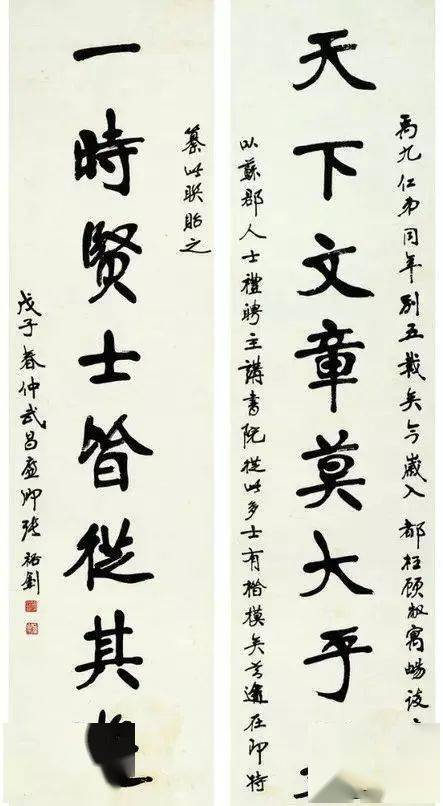 禹九仁弟同年別五載矣今歲入都枉顧敝寓暢談
天下文章莫大乎
以蘇郡人士禮聘主講書院從此多士有楷模矣首途在即特
纂此联貽之
一時賢士皆從其
戊子春仲武昌廉卿張裕釗